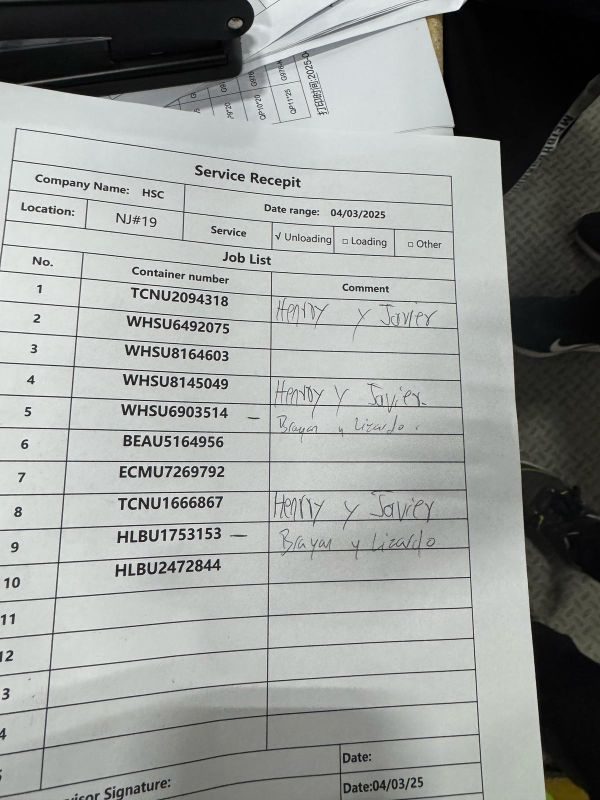 打印时间:2025-0
QP11*25 G976A
QP10*20
Service Recepit
Company Name: HSC Date range: 04/03/2025
Location: NJ#19 Service √ Unloading □ Loading □ Other
Job List
No. Container number Comment
1 TCNU2094318 Henrry y Javier
2 WHSU6492075
3 WHSU8164603
4 WHSU8145049 Henrry y Javier.
5 WHSU6903514 — Brayan y Lizardo.
6 BEAU5164956
7 ECMU7269792
8 TCNU1666867 Henrry y Javier
9 HLBU1753153 — Brayan y Lizardo
10 HLBU2472844
11
12
3
4
Date:
isor Signature: Date:04/03/25